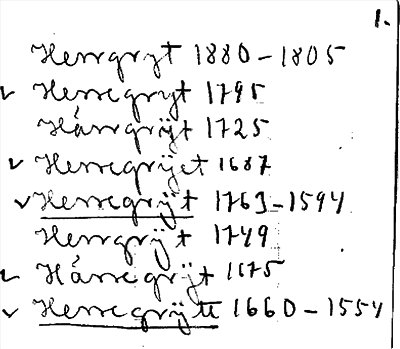 1.
Herrgryt 1880-1805
v Herregryt 1795
Hárrgrÿt 1725
v Herregrÿet 1687
v Herregrÿt 1763-1594
Herrgrÿt 1749
v Hárregrÿt 1675
v Herregrÿtt 1660-1554